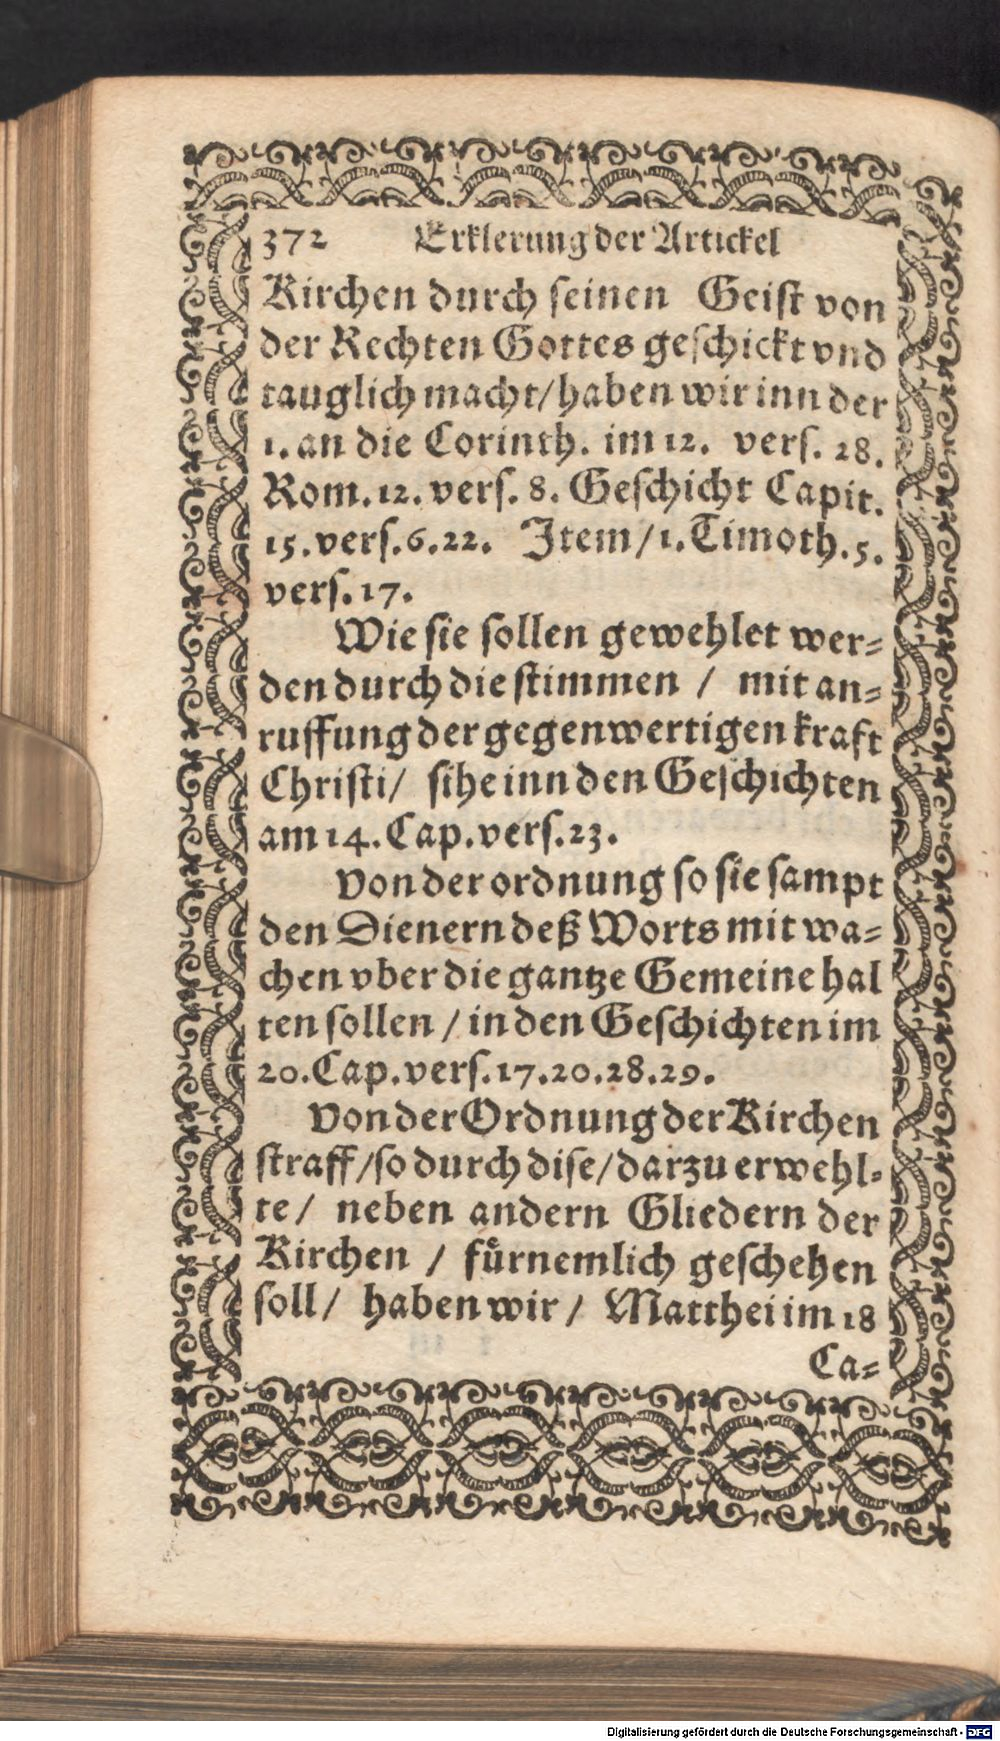 372 Erklerung der Artickel
Kirchen durch seinen Geist von
der Rechten Gottes geschickt vnd
tauglich macht/ haben wir inn der
1. an die Corinth. im 12. vers. 28.
Rom. 12. vers. 8. Geschicht Capit.
15. vers. 6. 22. Item/ 1. Timoth. 5.
vers. 17.
Wie sie sollen gewehlet wer=
den durch die stimmen / mit an=
ruffung der gegenwertigen krafft
Christi/ sihe inn den Geschichten
am 14. Cap. vers. 23.
Von der ordnung so sie sampt
den Dienern deß Worts mit wa=
chen vber die gantze Gemeine hal
ten sollen / in den Geschichten im
20. Cap. vers. 17. 20. 28. 29.
Von der Ordnung der Kirchen
straff/ so durch dise/ darzu erwehl=
te/ neben andern Gliedern der
Kirchen / fuͤrnemlich geschehen
soll/ haben wir/ Matthei im 18
Ca=
Digitalisierung gefördert durch die Deutsche Forschungsgemeinschaft - DFG